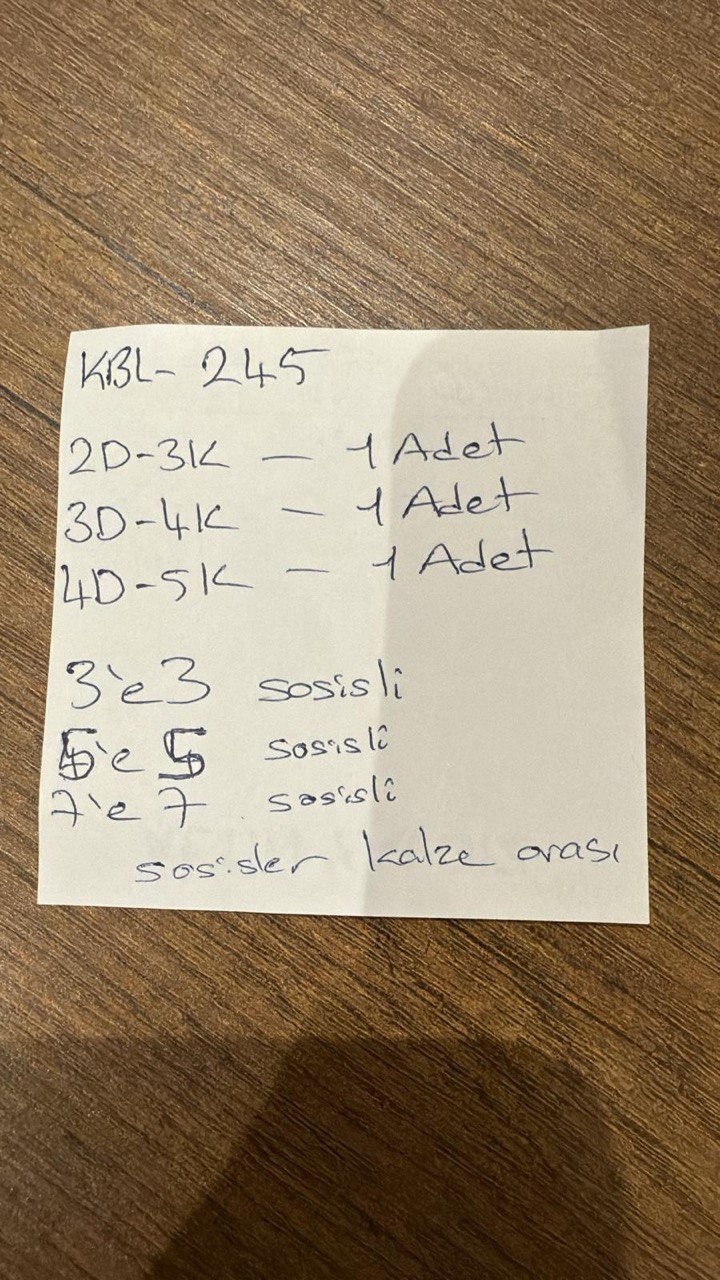 KBL- 245
2D-3K — 1 Adet
3D-4K — 1 Adet
4D-5K — 1 Adet
3'e 3 sosisli
5'e 5 sosisli
7'e 7 sosisli
sosisler kalze arası